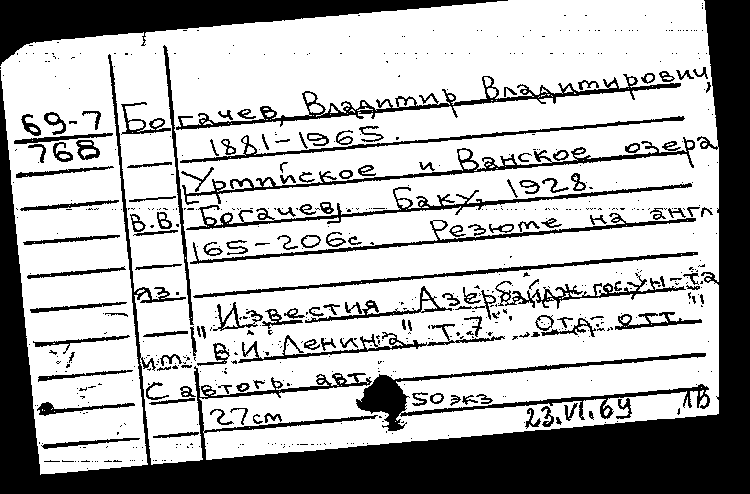 69-7 Богачев, Владимир Владимирович,
768 1881-1965.
Урмийское и Ванское озера
В.В. Богачев. Баку, 1928.
165-206с. Резюме на англ.
яз.
"Известия Азербайдж. гос. ун-та
им. В.И. Ленина", т.7. Отд. отт."
С автогр. авт.
27см 50 экз 23.VI.69 1В